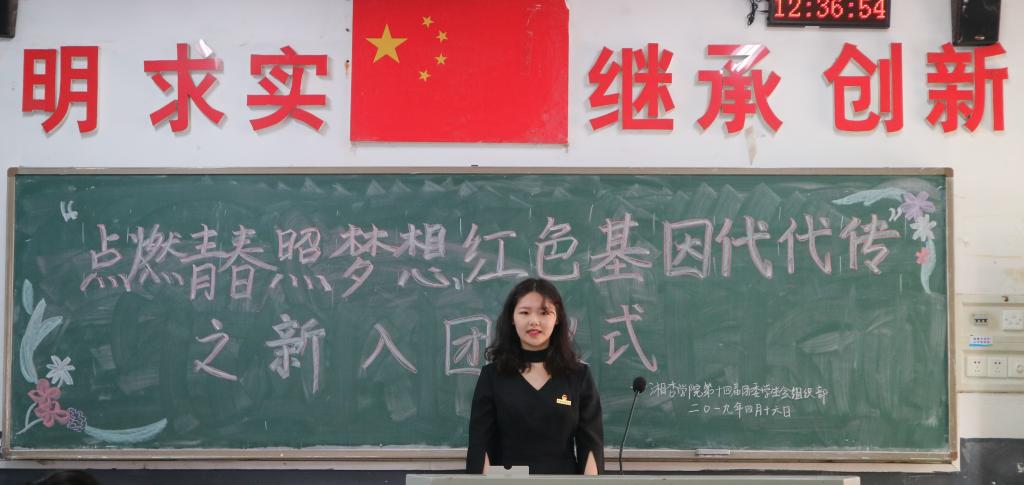 12:36:54
明 求实 继承 创新
“点燃青春照梦想,红色基因代代传”
之新入团 式
湘杏学院第十四届团委学生会组织部
二〇一九年四月十六日